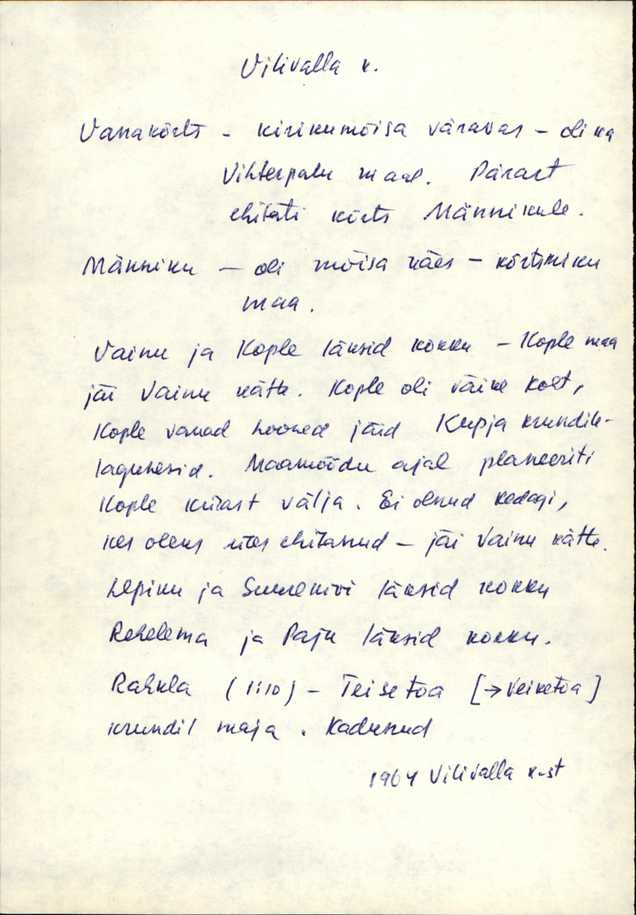 Vilivalla k.
Vanakõrts - kirikumõisa väravas - oli ka
Vihterpalu maal. Pärast
ehitati kõrts Männikule.
Männiku - oli mõisa käes - kõrtsmiku
maa.
Vainu ja Kople läksid kokku - Kople maa
jäi Vainu kätte. Kople oli väike koht,
Kople vanad hooned jäid Kupja krundile -
lagunesid. Maamõõdu ajal planeeriti
Kople külast välja. Ei olnud kedagi,
kes oleks üles ehitanud - jäi Vainu kätte.
Lepiku ja Suurekivi läksid kokku
Rehelema ja Paju läksid kokku.
Rahkla (1:10) - Teisetoa [→ Veiketoa]
krundil maja. Kadunud
1964 Vilivalla k-st